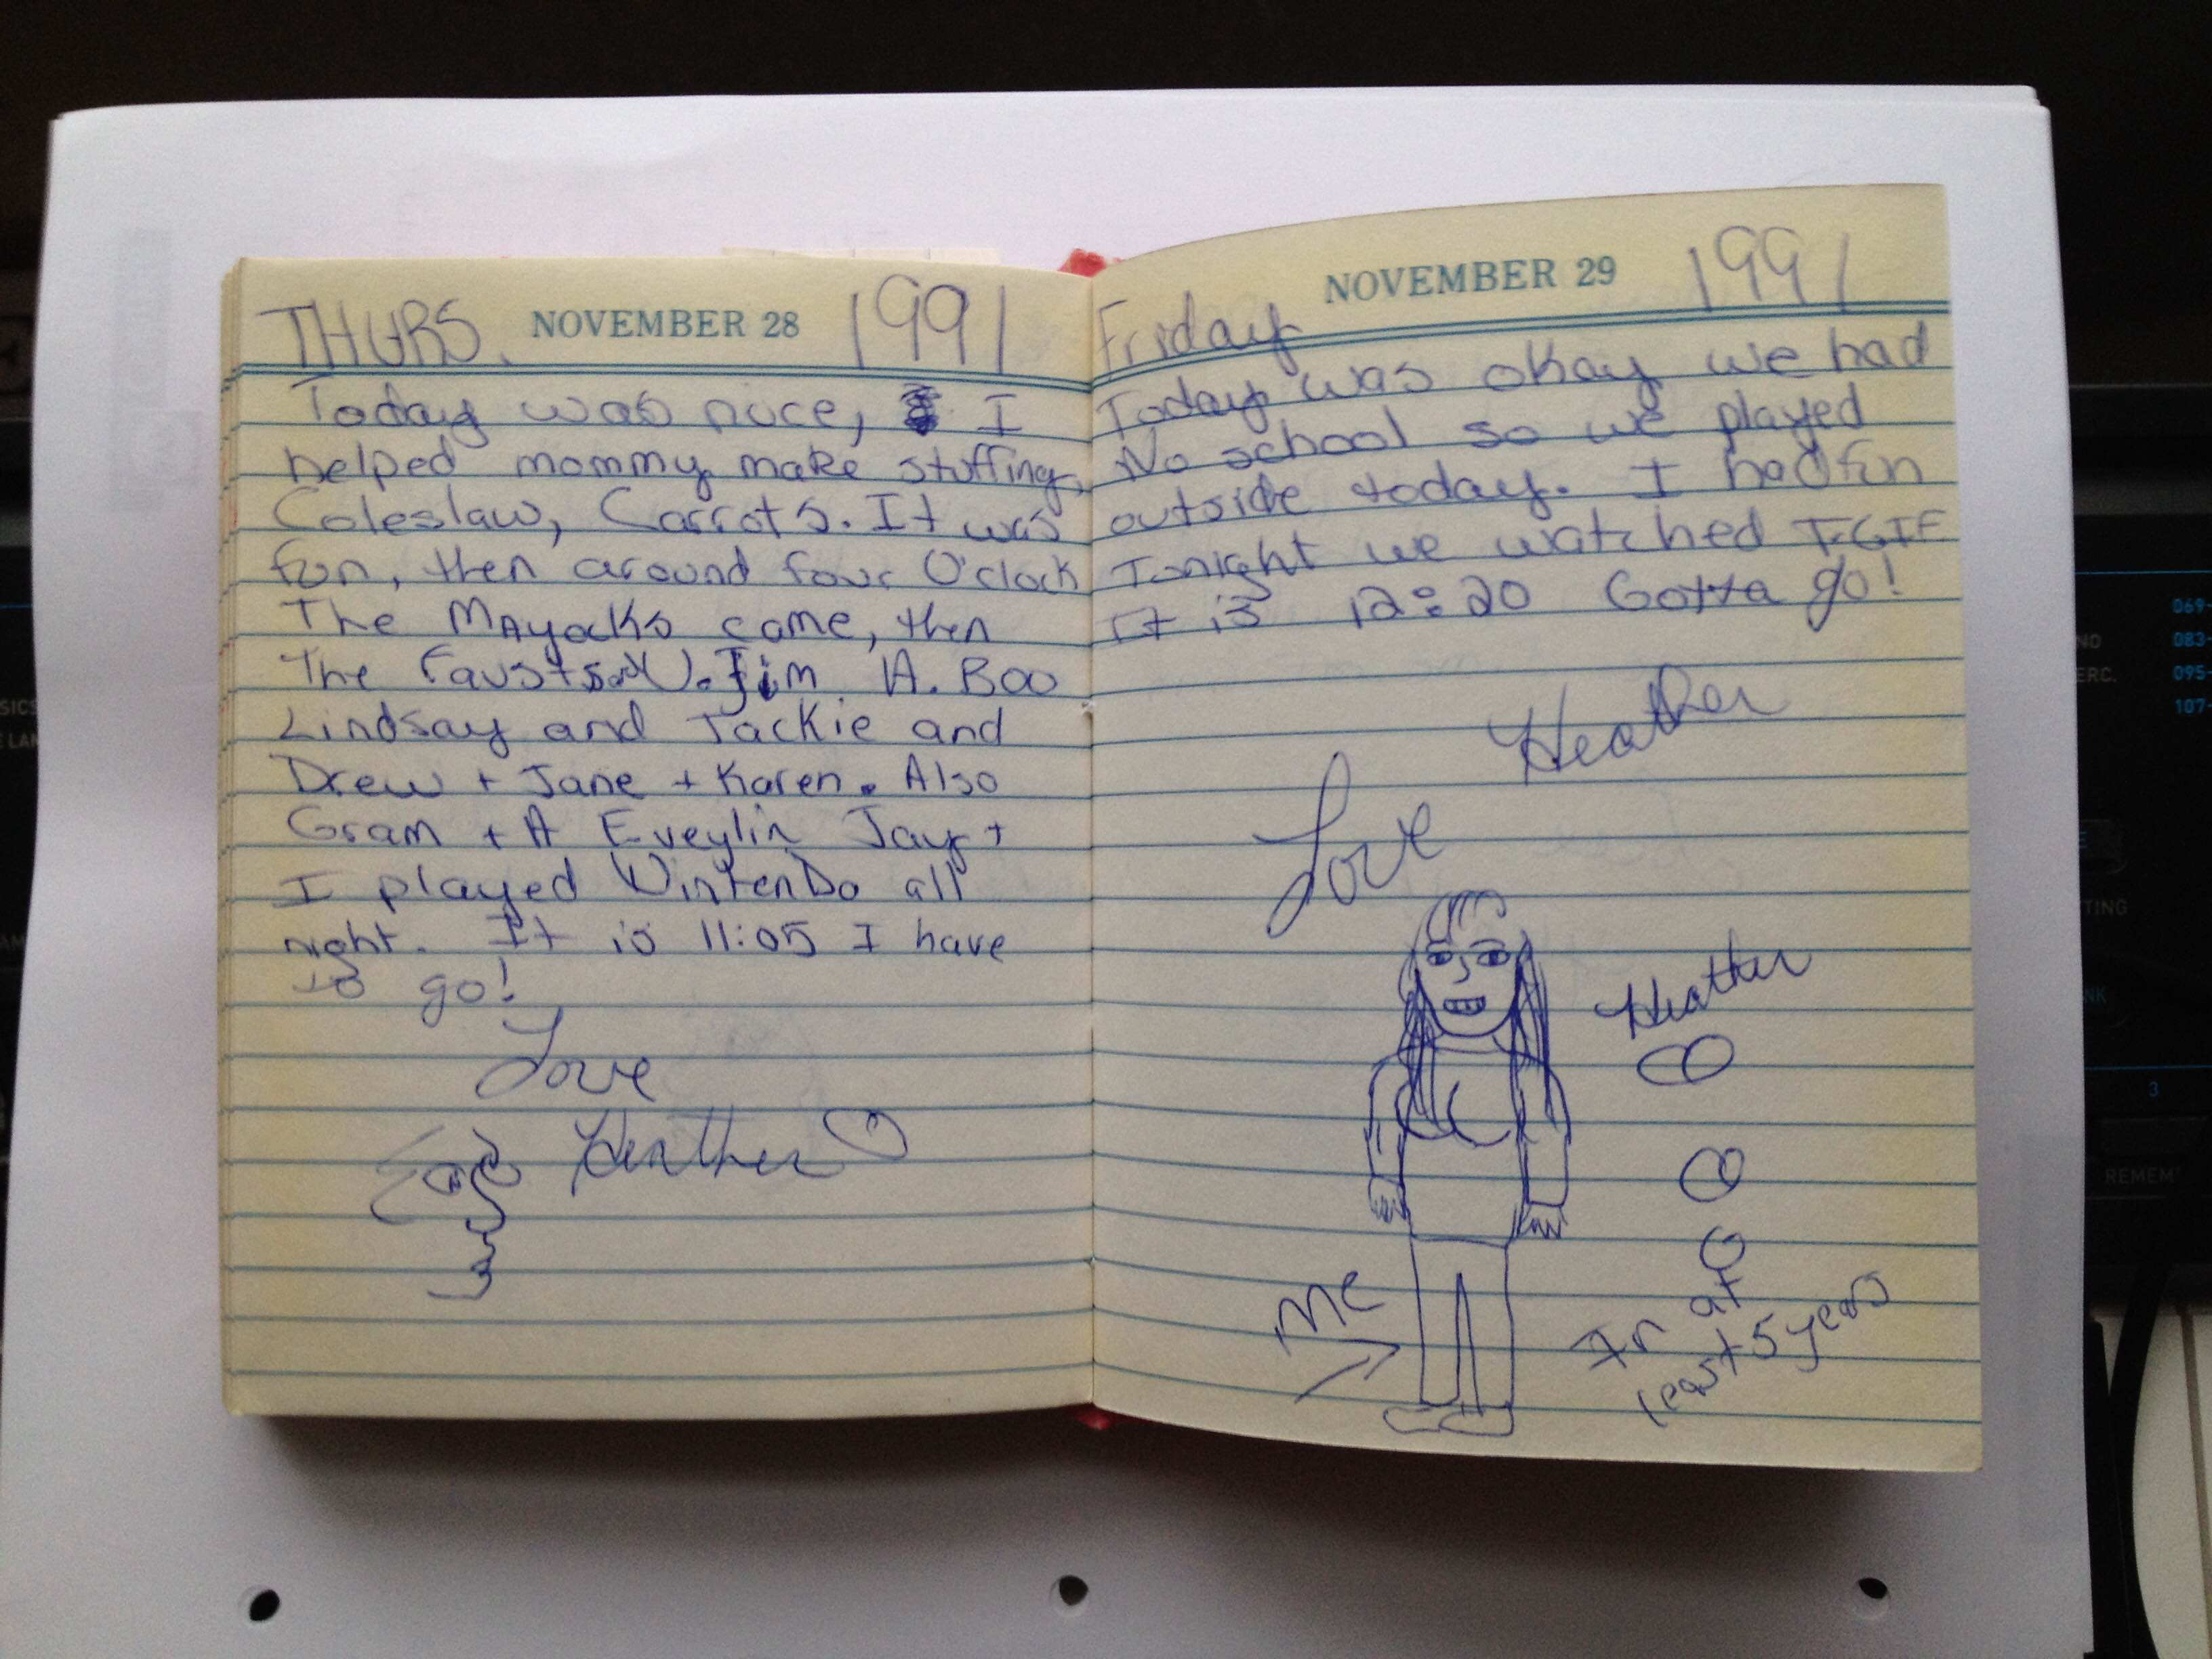 THURS. NOVEMBER 28 1991
Today was nice, I
helped mommy make stuffing,
Coleslaw, Carrots. It was
fun, then around four O'clock
The MAyocks came, then
The Fausts and U. Jim A. Boo
Lindsay and Jackie and
Drew + Jane + Karen. Also
Gram + A Eveylin Jay +
I played NintenDo all
night. It is 11:05 I have
to go!
Love
Heather
Friday NOVEMBER 29 1991
Today was okay we had
No school so we played
outside today. I had fun
Tonight we watched T.G.I.F
It is 12:20 Gotta go!
Love Heather
Heather
Me
In at
least 5 years
069-
083-
095-
107-
ERC.
TTING
3
REMEM